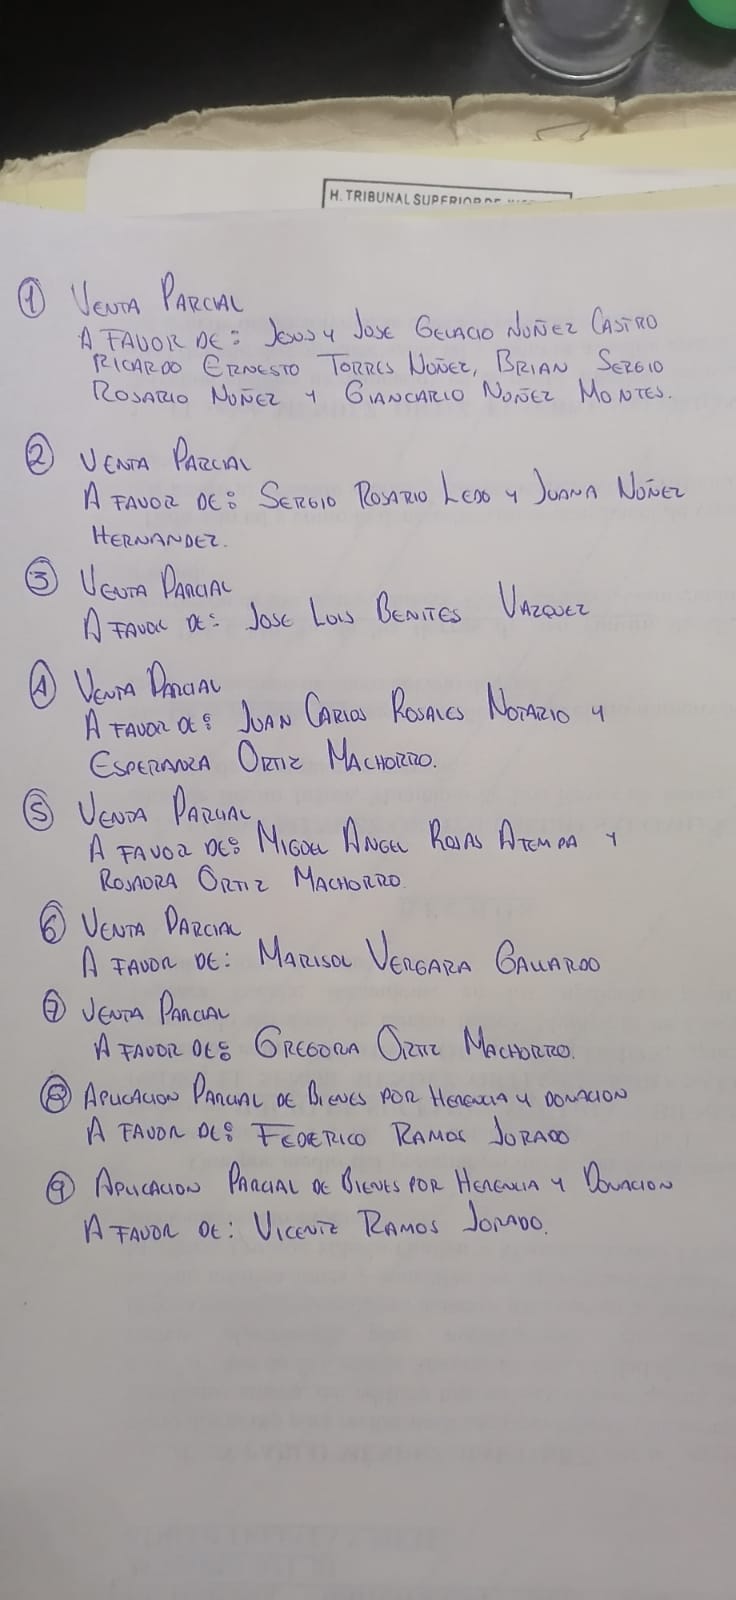 H. TRIBUNAL SUPERIOR DE
① VENTA PARCIAL
A FAVOR DE: JESUS Y JOSE GELACIO NUÑEZ CASTRO
RICARDO ERNESTO TORRES NUÑEZ, BRIAN SERGIO
ROSARIO NUÑEZ Y GIANCARIO NUÑEZ MONTES.
② VENTA PARCIAL
A FAVOR DE: SERGIO ROSARIO LEDO Y JUANA NÚÑEZ
HERNANDEZ.
③ VENTA PARCIAL
A FAVOR DE: JOSE LUIS BENITES VAZQUEZ
④ VENTA PARCIAL
A FAVOR DE: JUAN CARLOS ROSALES NOTARIO Y
ESPERANZA ORTIZ MACHORRO.
⑤ VENTA PARCIAL
A FAVOR DE: MIGUEL ANGEL ROJAS ATEMPA Y
ROSAURA ORTIZ MACHORRO.
⑥ VENTA PARCIAL
A FAVOR DE: MARISOL VERGARA GALLARDO
⑦ VENTA PARCIAL
A FAVOR DE: GREGORIA ORTIZ MACHORRO.
⑧ APLICACION PARCIAL DE BIENES POR HERENCIA Y DONACION
A FAVOR DE: FEDERICO RAMOS JURADO
⑨ APLICACION PARCIAL DE BIENES POR HERENCIA Y DONACION
A FAVOR DE: VICENTE RAMOS JURADO.